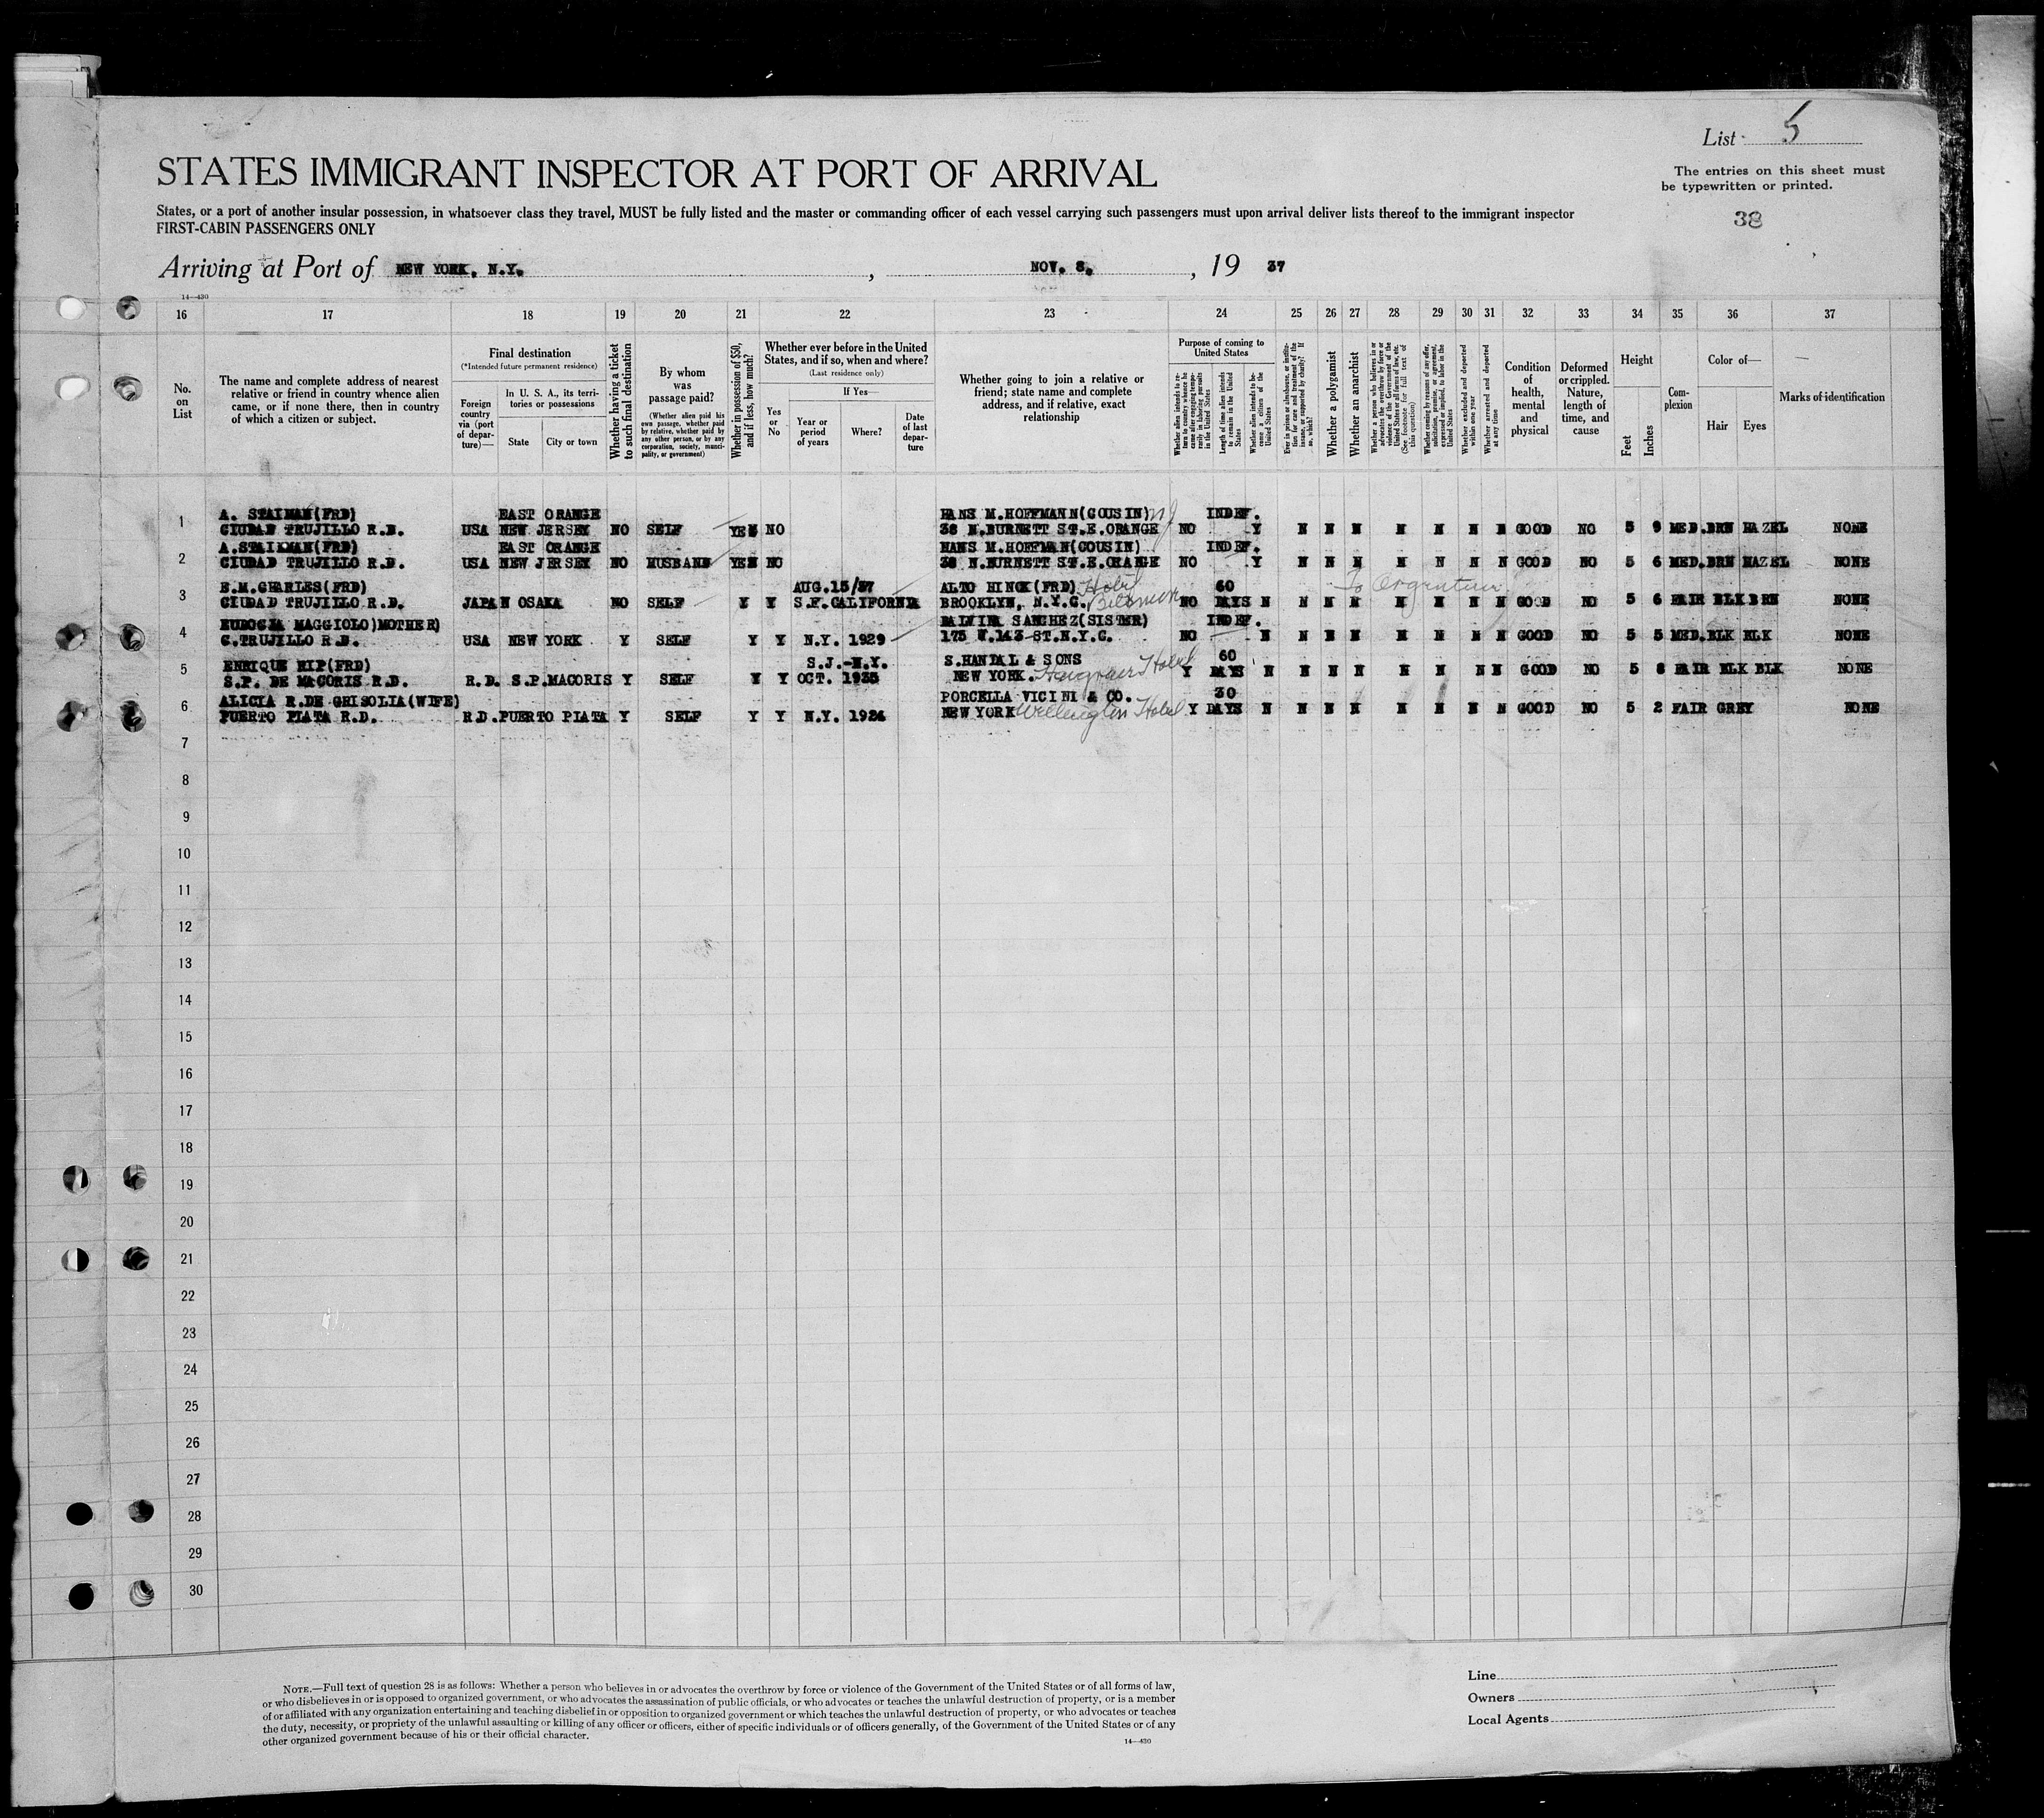 List 5
The entries on this sheet must
be typewritten or printed.
38
STATES IMMIGRANT INSPECTOR AT PORT OF ARRIVAL
States, or a port of another insular possession, in whatsoever class they travel, MUST be fully listed and the master or commanding officer of each vessel carrying such passengers must upon arrival deliver lists thereof to the immigrant inspector
FIRST-CABIN PASSENGERS ONLY
Arriving at Port of NEW YORK, N.Y. , NOV. 8, , 19 37
14—430
16 17 18 19 20 21 22 23 24 25 26 27 28 29 30 31 32 33 34 35 36 37
No. on List
The name and complete address of nearest relative or friend in country whence alien came, or if none there, then in country of which a citizen or subject.
Final destination
(*Intended future permanent residence)
Foreign country via (port of departure)—
In U. S. A., its territories or possessions
State
City or town
Whether having a ticket to such final destination
By whom was passage paid?
(Whether alien paid his own passage, whether paid by relative, whether paid by any other person, or by any corporation, society, municipality, or government)
Whether in possession of $50, and if less, how much?
Whether ever before in the United States, and if so, when and where?
(Last residence only)
Yes or No
If Yes—
Year or period of years
Where?
Date of last departure
Whether going to join a relative or friend; state name and complete address, and if relative, exact relationship
Purpose of coming to United States
Whether alien intends to return to country whence he came after engaging temporarily in laboring pursuits in the United States
Length of time alien intends to remain in the United States
Whether alien intends to become a citizen of the United States
Ever in prison or almshouse, or institution for care and treatment of the insane, or supported by charity? If so, which?
Whether a polygamist
Whether an anarchist
Whether a person who believes in or advocates the overthrow by force or violence of the Government of the United States or all forms of law, etc. (See footnote for full text of this question)
Whether coming by reasons of any offer, solicitation, promise, or agreement, expressed or implied, to labor in the United States
Whether excluded and deported within one year
Whether arrested and deported at any time
Condition of health, mental and physical
Deformed or crippled. Nature, length of time, and cause
Height
Feet
Inches
Complexion
Color of—
Hair
Eyes
Marks of identification
A. STAIMAN(FRD) EAST ORANGE HANS M.HOFFMANN(COUSIN) NJ INDEF.
1 CIUDAD TRUJILLO R.D. USA NEW JERSEY NO SELF YES NO 38 N.BURNETT ST.E.ORANGE NO Y N N N N N N N GOOD NO 5 9 MED.BRN HAZEL NONE
A.STAIMAN(FRD) EAST ORANGE HANS M.HOFFMAN(COUSIN) INDEF.
2 CIUDAD TRUJILLO R.D. USA NEW JERSEY NO HUSBAND YES NO 38 N.BURNETT ST.E.ORANGE NO Y N N N N N N N GOOD NO 5 6 MED.BRN HAZEL NONE
E.M.CHARLES(FRD) AUG.15/37 ALTO HINCK(FRD) Hotel 60 To Argentina
3 CIUDAD TRUJILLO R.D. JAPAN OSAKA NO SELF Y Y S.F.CALIFORNIA BROOKLYN, N.Y.C. NO DAYS N N N N N N N N GOOD NO 5 6 FAIR BLK BRN NONE
EUDOCIA MAGGIOLO)MOTHER) BALVIRA SANCHEZ(SISTER) INDEF.
4 C.TRUJILLO R.D. USA NEW YORK Y SELF Y Y N.Y. 1929 175 W.143 ST.N.Y.C. NO N N N N N N N N GOOD NO 5 5 MED.BLK BLK NONE
ENRIQUE RIP(FRD) S.J.-N.Y. S.HANDAL & SONS 60
5 S.P. DE MACORIS R.D. R.D. S.P.MACORIS Y SELF Y Y OCT. 1935 NEW YORK. Hotel Y DAYS N N N N N N N N GOOD NO 5 8 FAIR BLK BLK NONE
ALICIA R.DE GRISOLIA(WIFE) PORCELLA VICINI & CO. 30
6 PUERTO PLATA R.D. R.D.PUERTO PLATA Y SELF Y Y N.Y. 1924 NEW YORK Wellington Hotel Y DAYS N N N N N N N N GOOD NO 5 2 FAIR GREY NONE
7
8
9
10
11
12
13
14
15
16
17
18
19
20
21
22
23
24
25
26
27
28
29
30
NOTE.—Full text of question 28 is as follows: Whether a person who believes in or advocates the overthrow by force or violence of the Government of the United States or of all forms of law,
or who disbelieves in or is opposed to organized government, or who advocates the assassination of public officials, or who advocates or teaches the unlawful destruction of property, or is a member
of or affiliated with any organization entertaining and teaching disbelief in or opposition to organized government or which teaches the unlawful destruction of property, or who advocates or teaches
the duty, necessity, or propriety of the unlawful assaulting or killing of any officer or officers, either of specific individuals or of officers generally, of the Government of the United States or of any
other organized government because of his or their official character.
14—430
Line
Owners
Local Agents